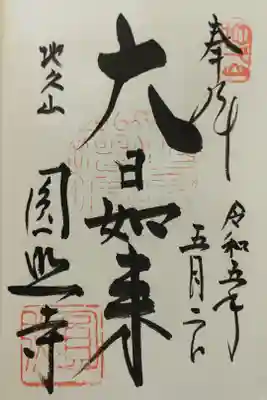 奉拝
令和五年
五月二日
大日如来
地久山
圓照寺